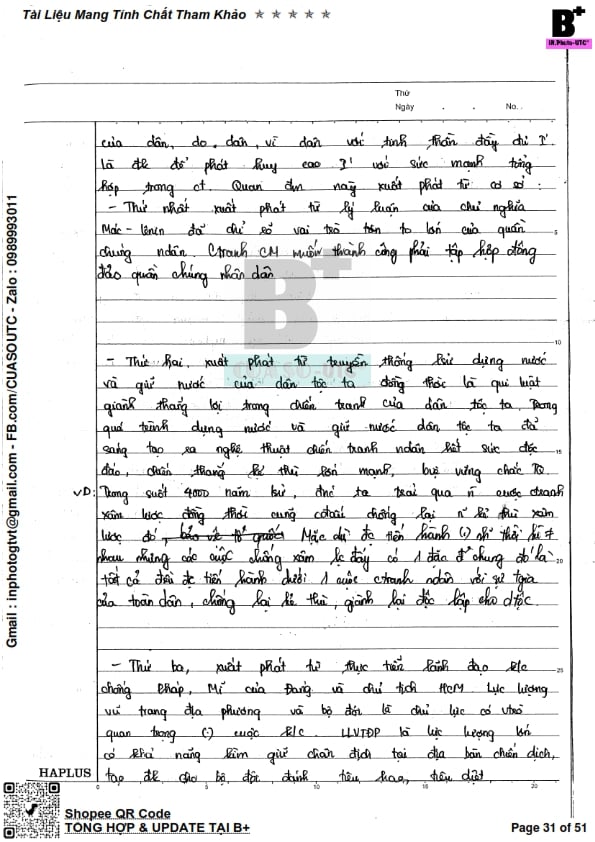 Tài Liệu Mang Tính Chất Tham Khảo ★ ★ ★ ★ ★
B+
IN.Photo-UTC
Thứ
Ngày . . No.
của dân, do dân, vì dân với tinh thần đầy đủ I'
là để để phát huy cao I' với sức mạnh tổng
hợp trong ct. Quan đm này xuất phát từ cơ sở :
- Thứ nhất xuất phát từ lý luận của chủ nghĩa
Mác - lênin đã chỉ rõ vai trò to lớn của quần
chúng ndân. Ctranh CM muốn thành công phải tập hợp đông
5
đảo quần chúng nhân dân
B+
CUASO-UTC
10
- Thứ hai xuất phát từ truyền thống lsử dựng nước
và giữ nước của dân tộc ta đồng thời là qui luật
giành thắng lợi trong chiến tranh của dân tộc ta. Trong
quá trình dựng nước và giữ nước dân tộc ta đã
sáng tạo ra nghệ thuật chiến tranh ndân hết sức độc
15
đáo, chiến thắng kẻ thù lớn mạnh, bvệ vững chắc TQ.
VD: Trong suốt 4000 năm lsử, đnc ta trải qua n cuộc ctranh
xâm lược đồng thời cũng chống lại n kẻ thù xâm
lược đó, bảo vệ tổ quốc Mặc dù đc tiến hành (.) nh~ thời kì ≠
nhau nhưng các cuộc chống xâm lc đấy có 1 đặc đ' chung đó là
20
tất cả đều đc tiến hành dưới 1 cuộc ctranh ndân với sự tgia
của toàn dân, chống lại kẻ thù, giành lại độc lập cho dtộc.
- Thứ ba, xuất phát từ thực tiễn lãnh đạo k/c
25
chống Pháp, Mĩ của Đảng và chủ tịch HCM. Lực lượng
vũ trang địa phương và bộ đội là chủ lực có vtrò
quan trọng (.) cuộc k/c. LLVTĐP là lực lượng lớn
có khả năng kìm giữ chân địch tại địa bàn chiến dịch,
tạo đk cho bộ đội đánh tiêu hao, tiêu diệt
HAPLUS
0 5 10 15 20
Gmail : inphotogtvt@gmail.com - FB.com/CUASOUTC - Zalo : 0989993011
Shopee QR Code
TỔNG HỢP & UPDATE TẠI B+
Page 31 of 51